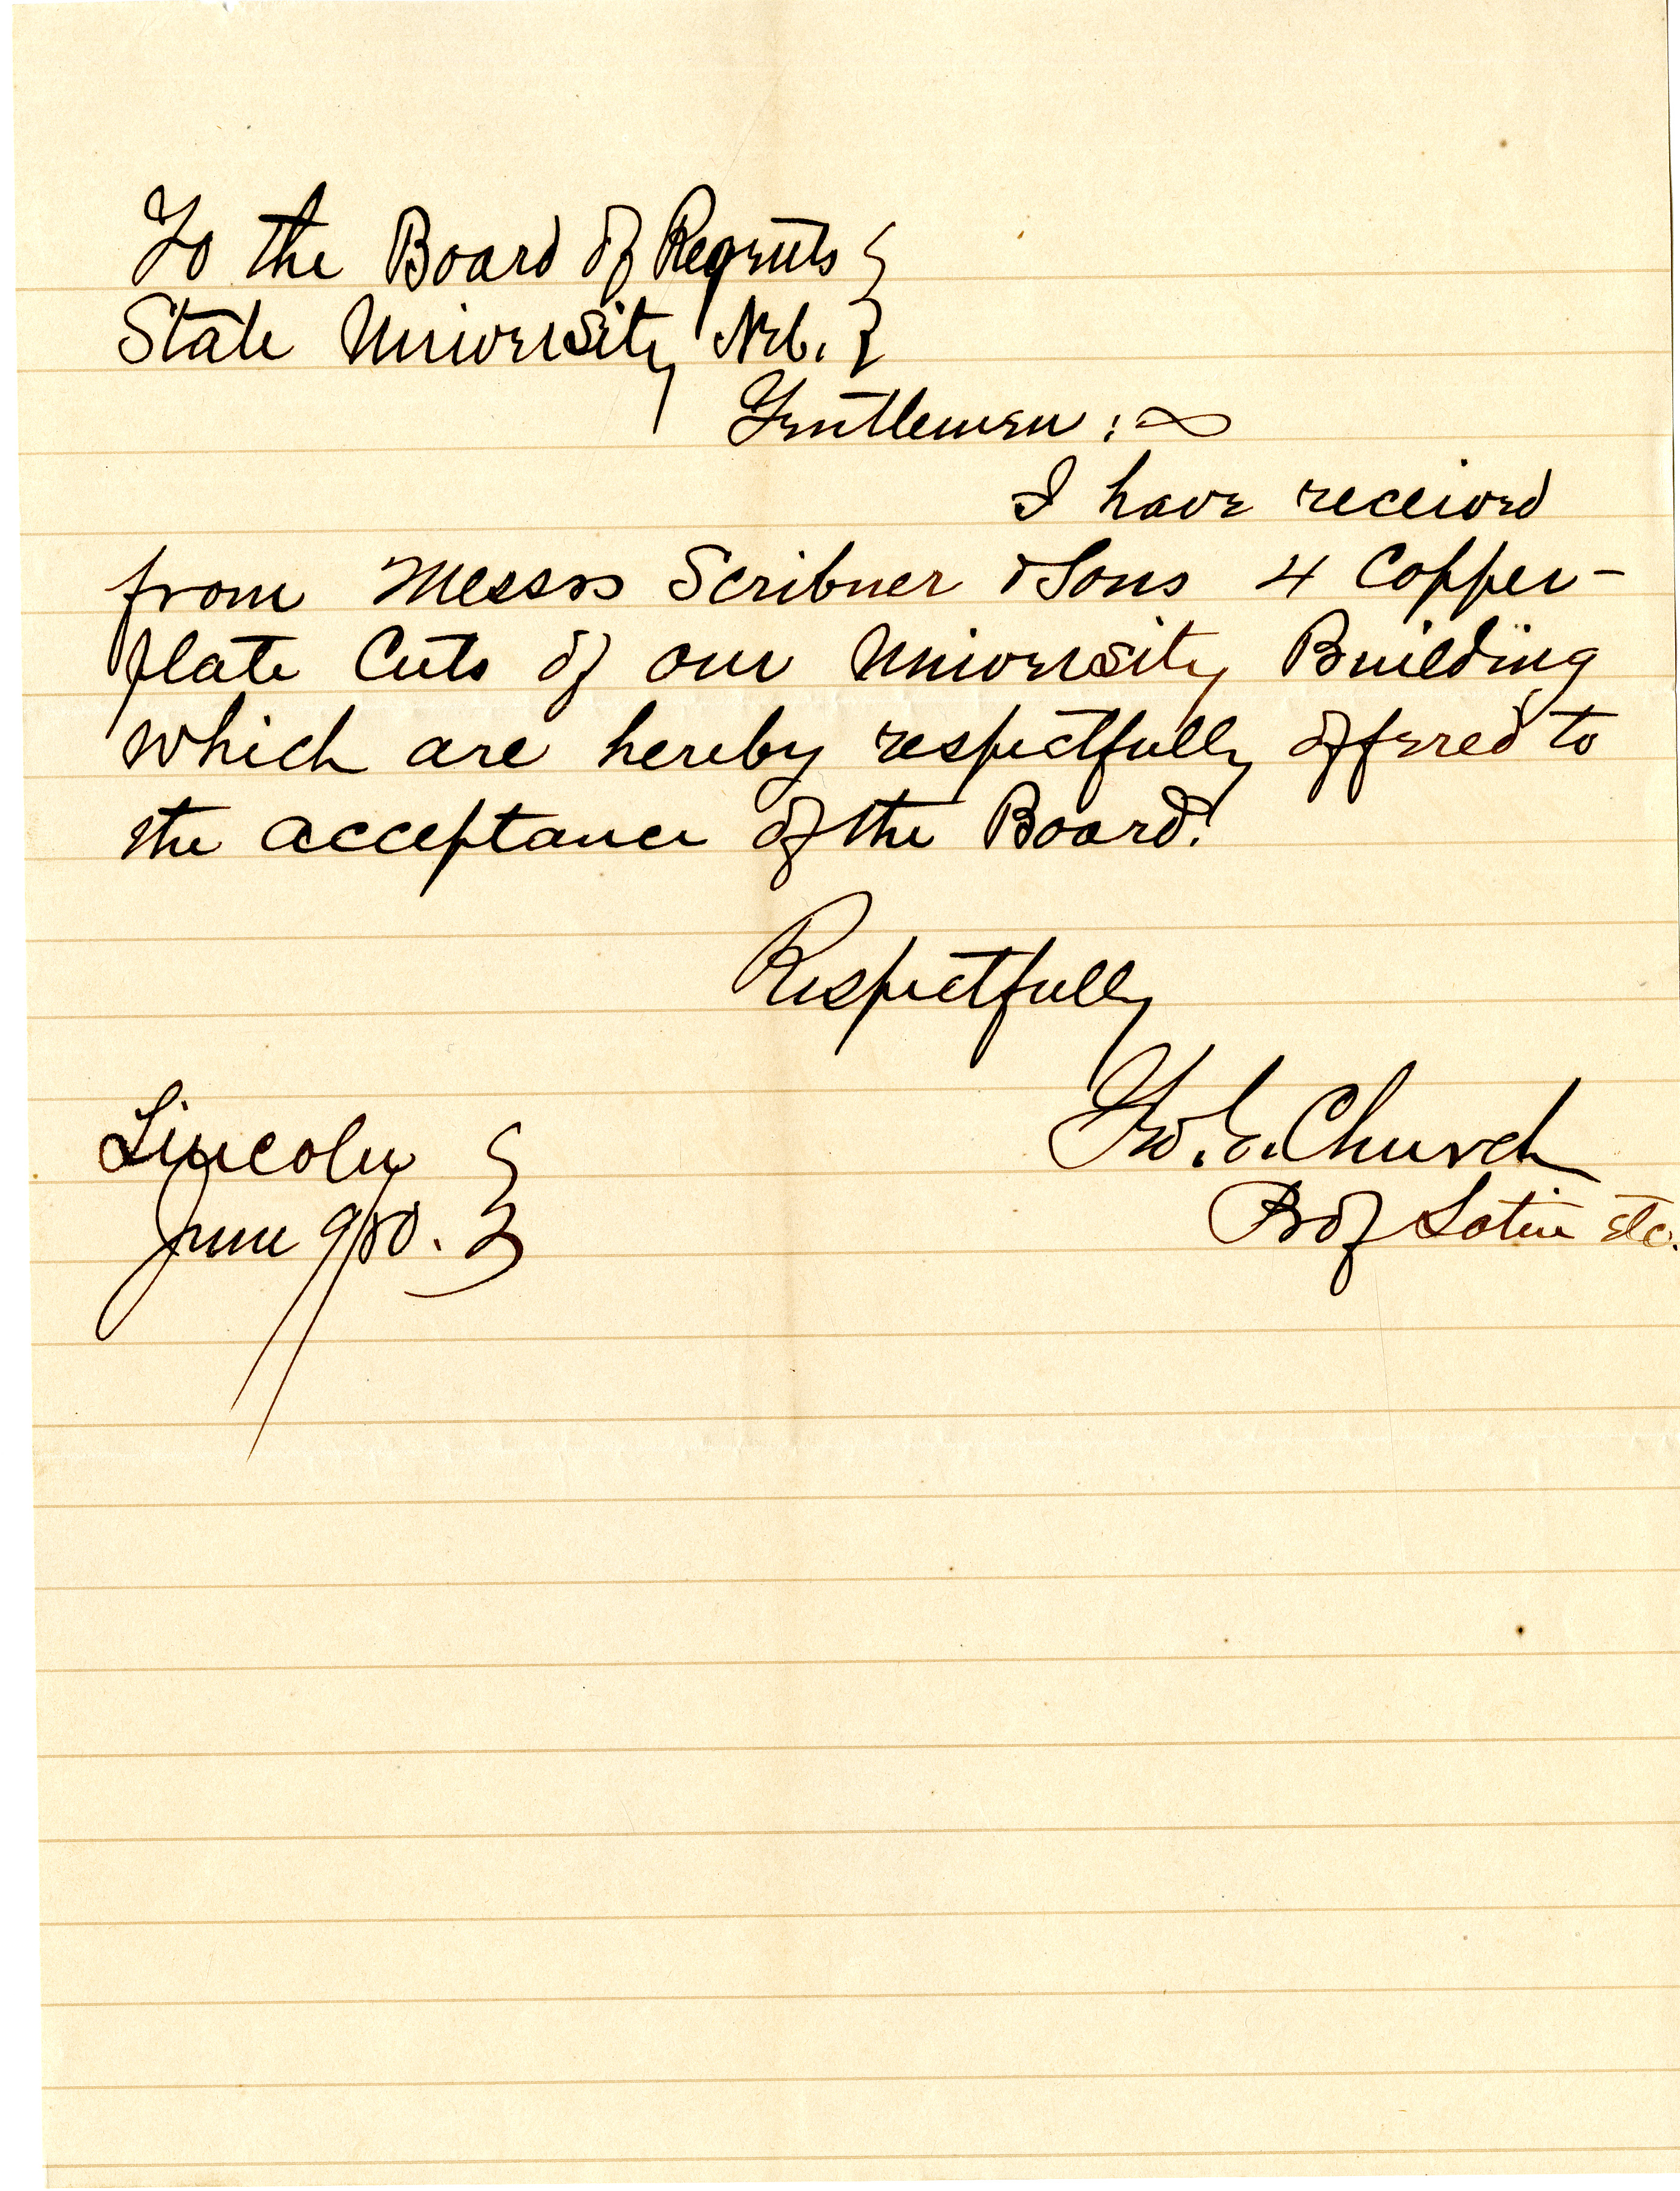 To the Board of Regents }
State University Neb. }
Gentlemen : ~
I have received
from Messrs Scribner & Sons 4 Copper-
plate Cuts of our University Building
which are hereby respectfully offered to
the acceptance of the Board.
Respectfully
Geo. E. Church
Prof Latin etc.
Lincoln }
June 9/80. }